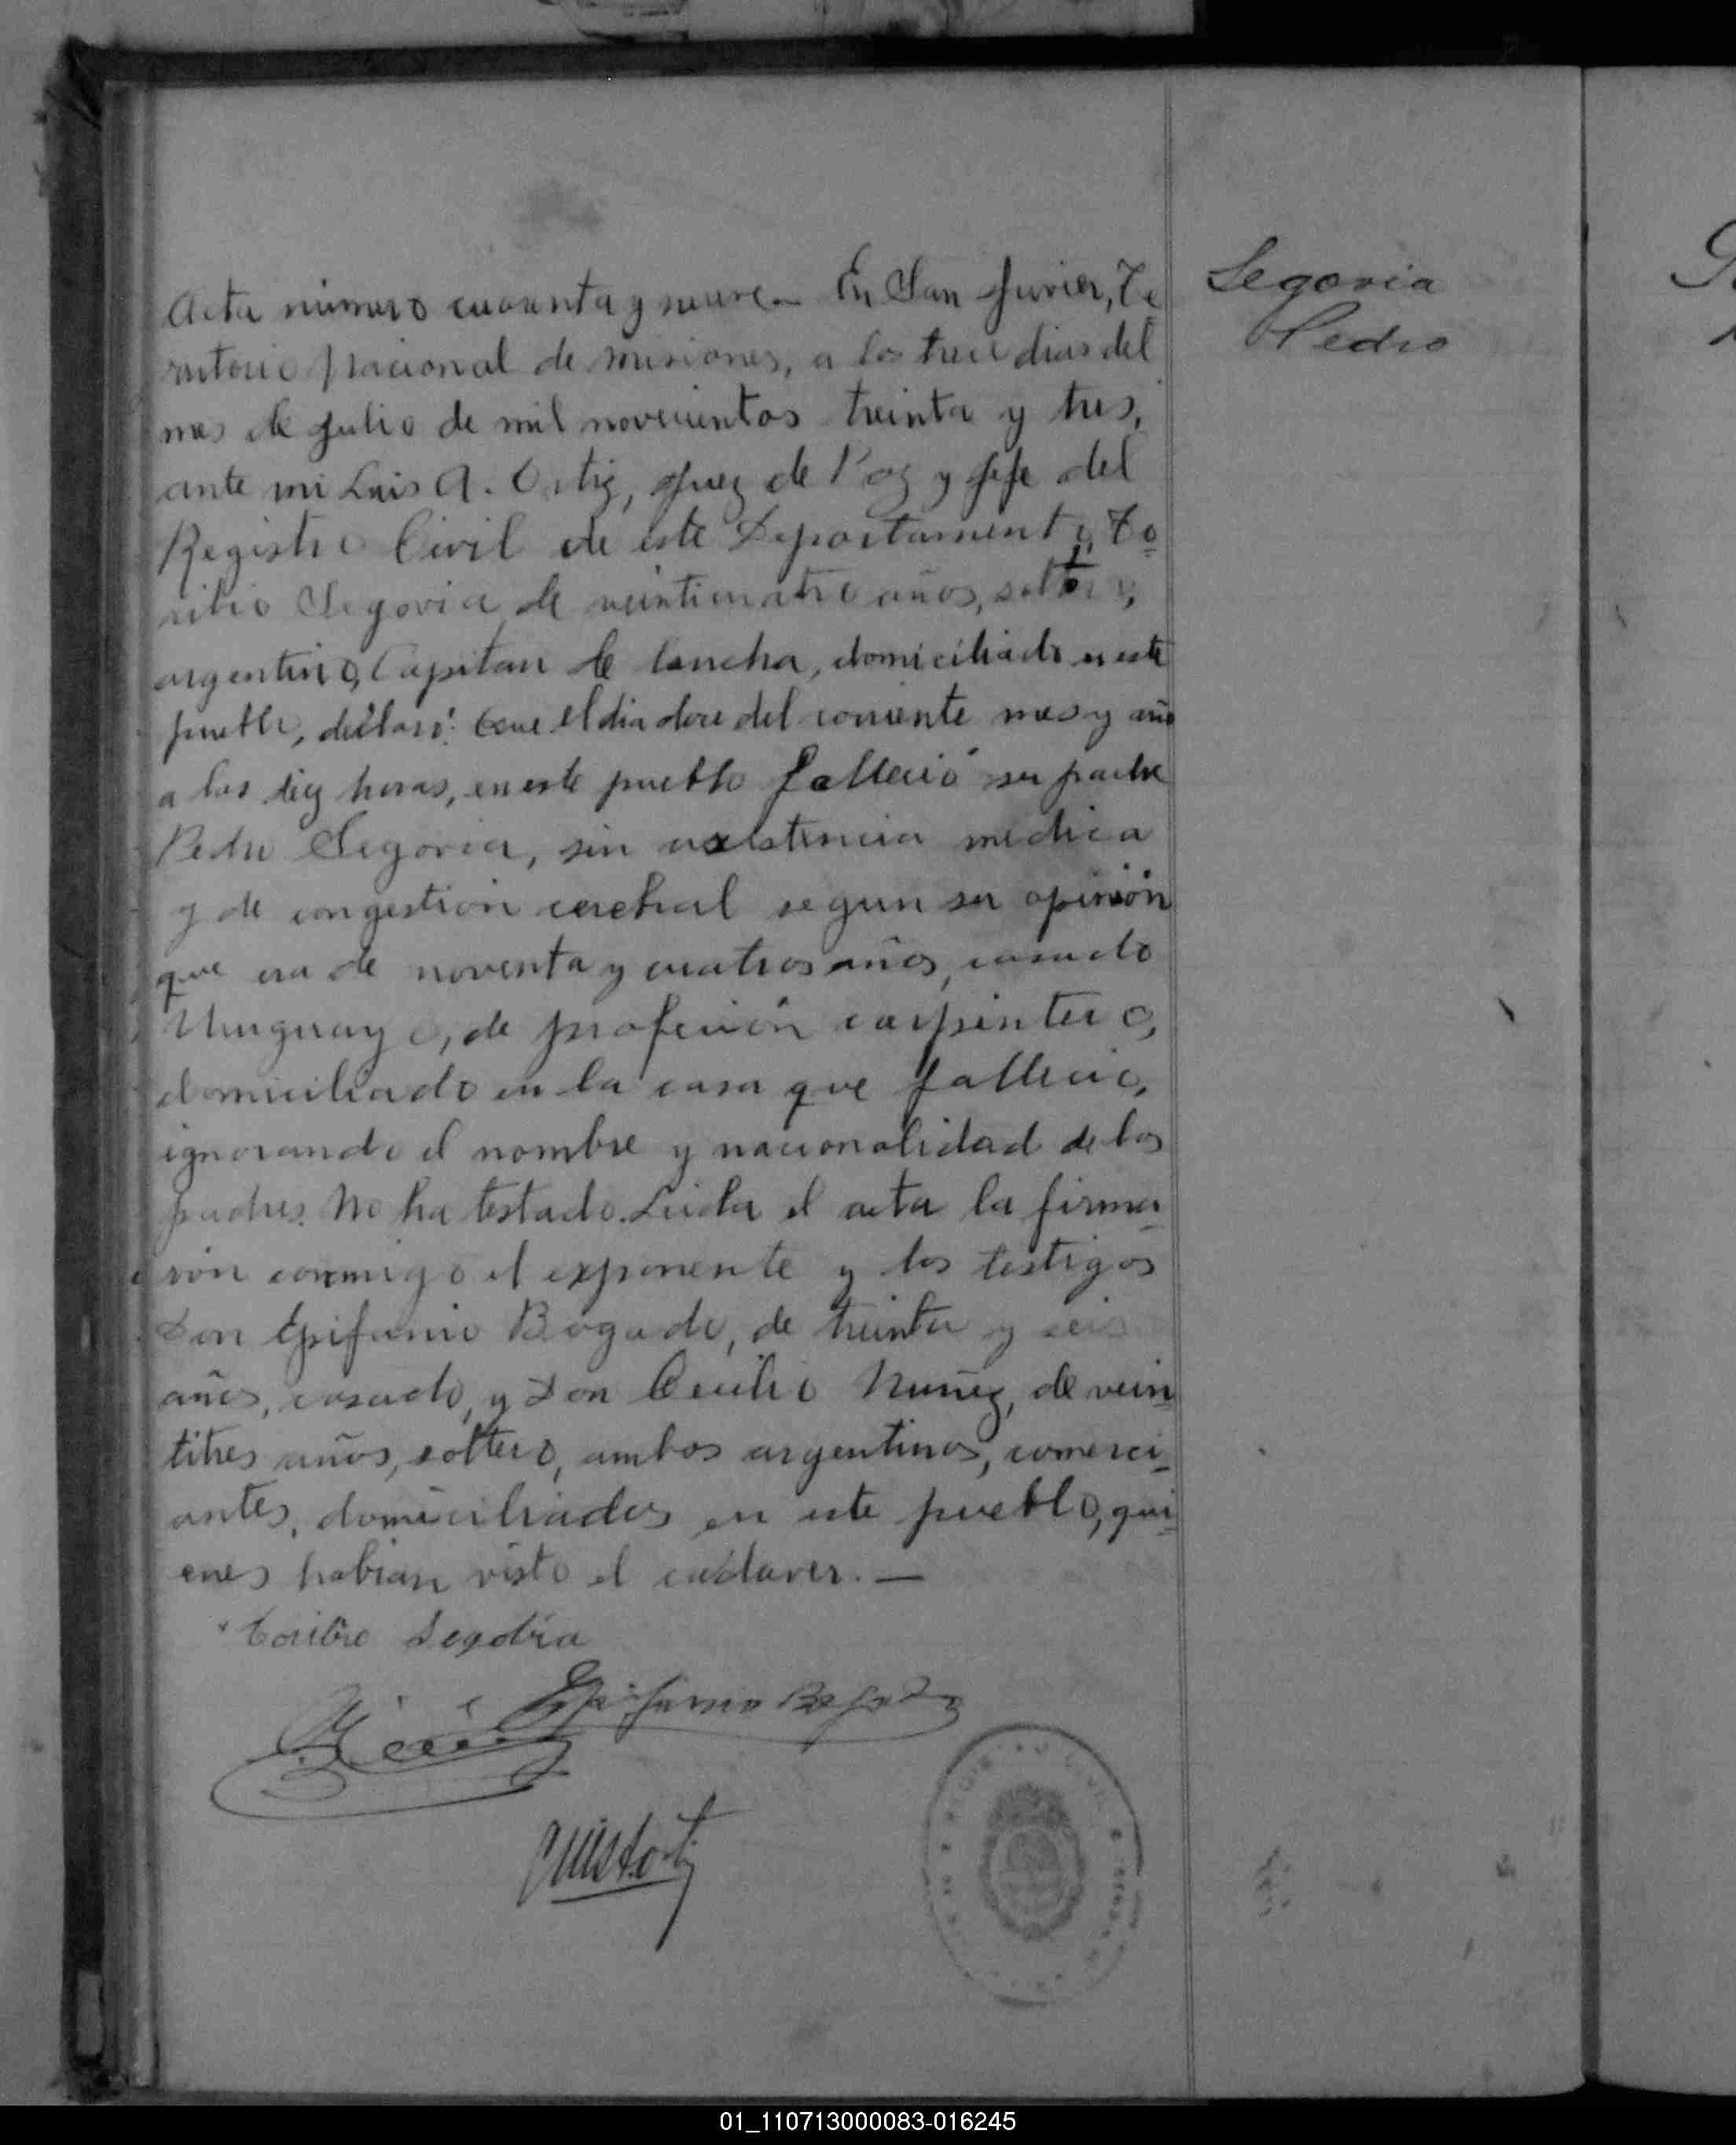 Acta número cuarenta y nueve.- En San Javier, Te
rritorio Nacional de Misiones, a los trece dias del
mes de Julio de mil novecientos treinta y tres,
ante mi Luis A. Ortiz, Juez de Paz y Jefe del
Registro Civil de este Departamento, To-
ribio Segovia, de veinticuatro años, soltero,
argentino, Capitan de lancha, domiciliado en este
pueblo, declaró: Que el dia doce del corriente mes y año
a las diez horas, en este pueblo falleció su padre
Pedro Segovia, sin asistencia médica
y de congestión cerebral segun su opinión
que era de noventa y cuatros años, casado
Uruguayo, de profesión carpintero,
domiciliado en la casa que falleció,
ignorando el nombre y nacionalidad de los
padres. No ha testado. Leida el acta la firma-
rón conmigo el exponente y los testigos
Don Epifanio Bogado, de treinta y seis
años, casado, y Don Cecilio Nuñez, de vein
titres años, soltero, ambos argentinos, comerci-
antes, domiciliados en este pueblo, qui-
enes habian visto el cadaver. —
Toribio Segovia
Epifanio Bogado
Luis A. Ortiz
Segovia
Pedro
01_110713000083-016245